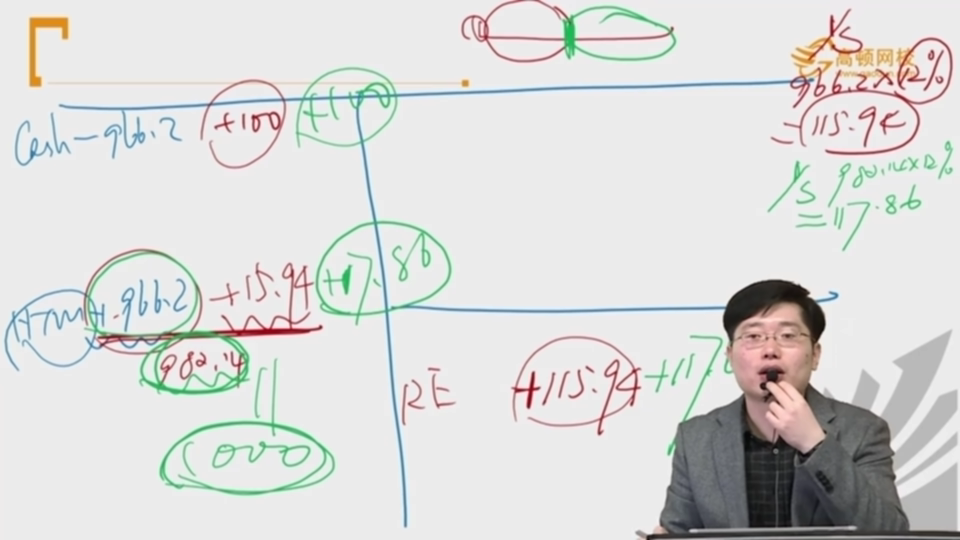 I/S
高顿网校
966.2×12%
=115.94
I/S 982.14×12%
=117.86
Cash -966.2 +100 +100
HTM +966.2 +15.94 +17.86
982.14
1000
RE +115.94 +117.